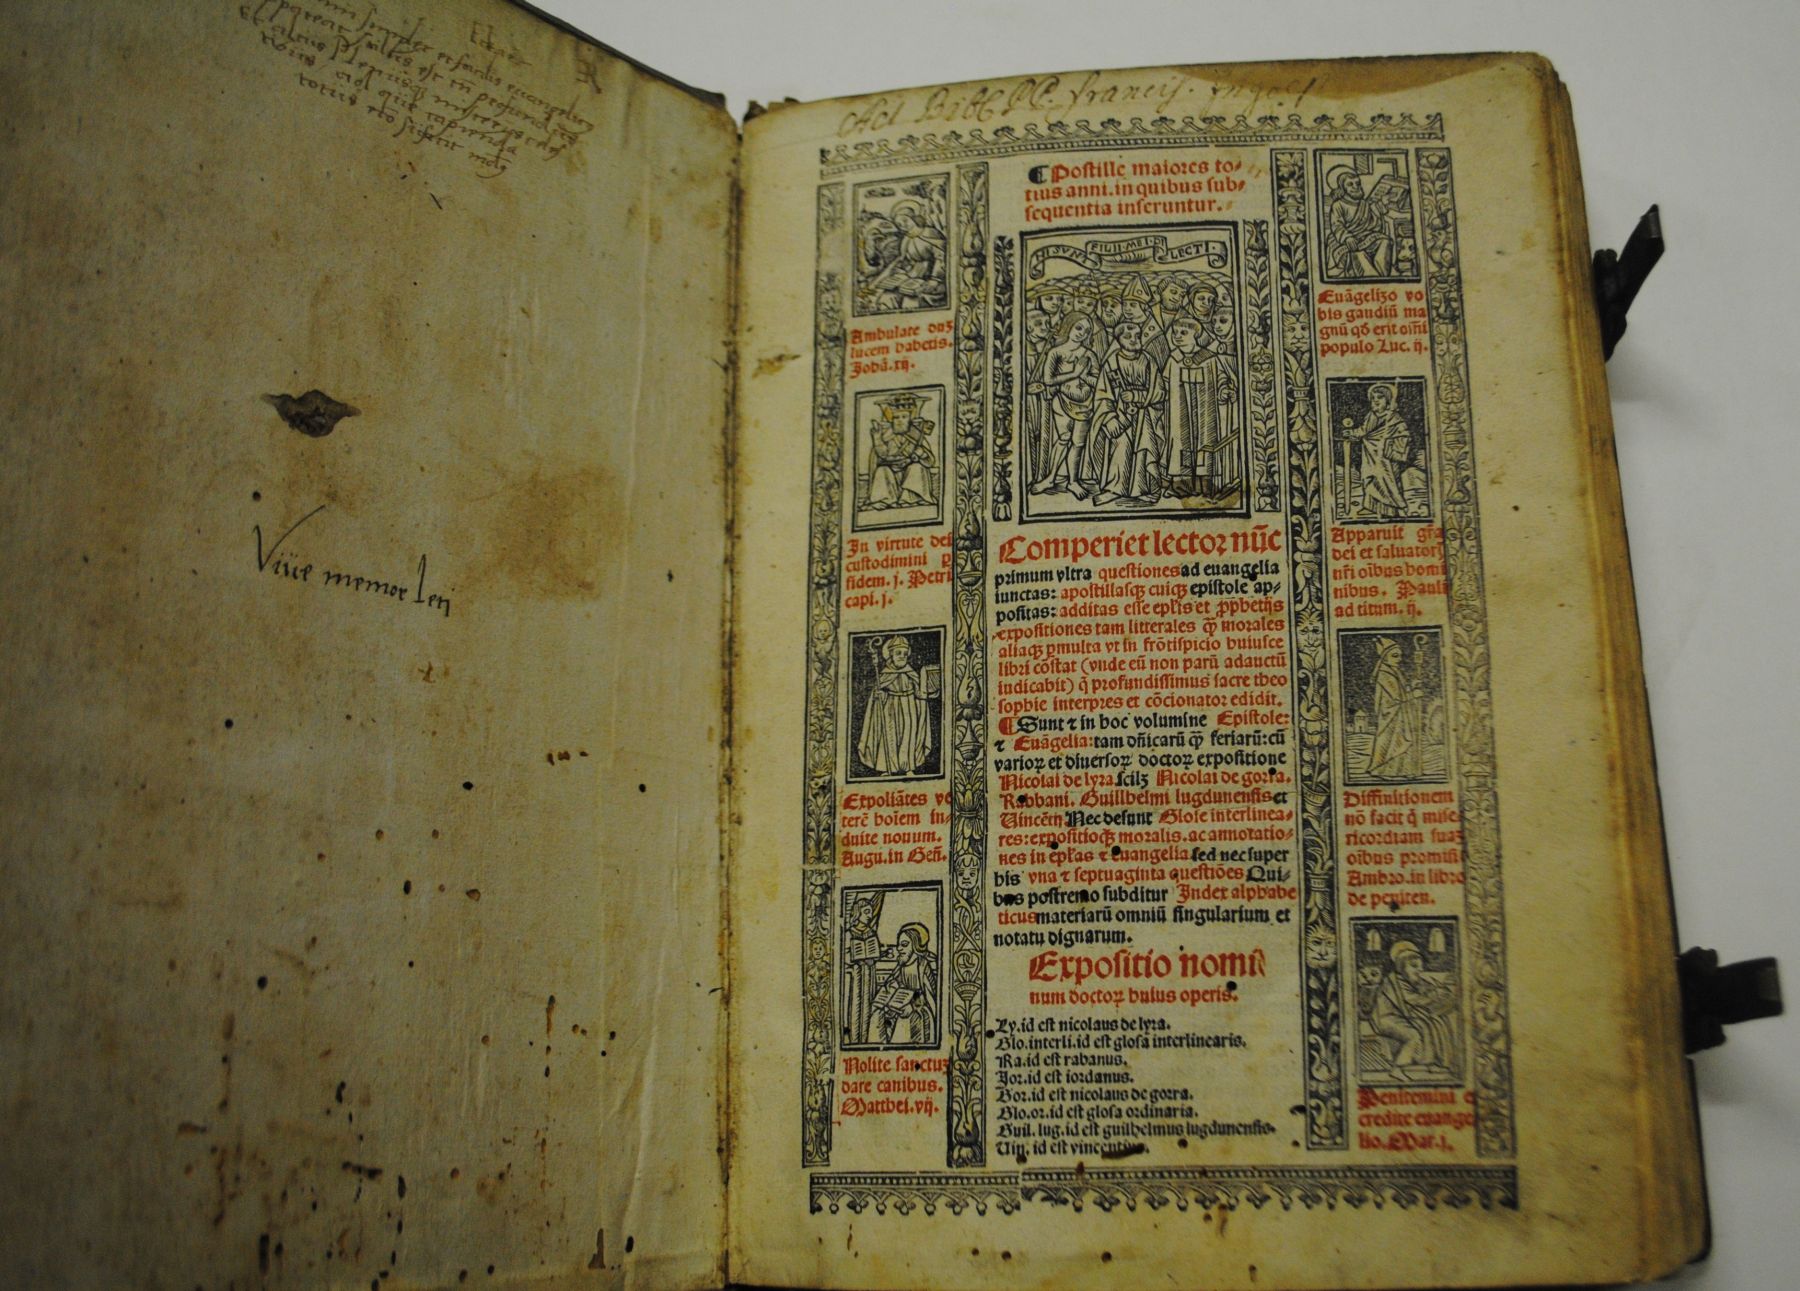 et facilis euangelium
est tamen profunditas
misteriis
tociis
Viue memor leti
Ad Bibl. PP. francis. Ingol
¶ Postille maiores to-
tius anni. in quibus sub-
sequentia inseruntur.
HI SVNT FILII MEI DI LECTI.
Ambulate dūꝫ
lucem habetis.
Johā. xij.
In virtute dei
custodimini ꝑ
fidem. j. Petri
capi. j.
Expoliātes ve
terē hoīem in-
duite nouum.
Augu. in Geñ.
Nolite sanctuꝫ
dare canibus.
Matthei. vij.
Comperiet lector nūc
primum vltra questiones ad euangelia
iunctas: apostillasqꝫ cuiqꝫ epistole ap-
positas: additas esse epl̄is et ꝓphetijs
expositiones tam litterales qꝫ̄ morales
aliaqꝫ ꝑmulta vt in frōtispicio huiusce
libri cōstat (vnde eū non parū adauctū
iudicabit) q̄ profundissimus sacre theo
sophie interpres et cōcionator edidit.
¶ Sunt ⁊ in hoc volumine Epistole:
⁊ Euāgelia: tam dn̄icarū qꝫ̄ feriarū: cū
varioꝝ et diuersoꝝ doctoꝝ expositione
Nicolai de lyra scilꝫ Nicolai de gorra.
Rabbani. Guillhelmi lugdunensis et
Vincētij Nec desunt Glose interlinea-
res: expositioqꝫ moralis. ac annotatio-
nes in epl̄as ⁊ euangelia sed nec super
his vna ⁊ septuaginta questiōes Qui-
bus postremo subditur Index alphabe
ticus materiarū omniū singularium et
notatu dignarum.
Expositio nomi-
num doctoꝝ huius operis.
Ly. id est nicolaus de lyra.
Glo. interli. id est glosa interlinearis.
Ra. id est rabanus.
Jor. id est iordanus.
Gor. id est nicolaus de gorra.
Glo. or. id est glosa ordinaria.
Guil. lug. id est guilhelmus lugdunensis.
Uin. id est vincentius.
Euāgelizo vo
bis gaudiū ma
gnū qḋ erit oīni
populo Luc. ij.
Apparuit gr̄a
dei et saluatoris
nr̄i oībus homi
nibus. Pauli
ad titum. ij.
Diffinitionem
nō facit q̄ mise
ricordiam suaꝫ
oībus promisit
Ambro. in libro
de peniten.
Penitemini ⁊
credite euange
lio. Mar. j.